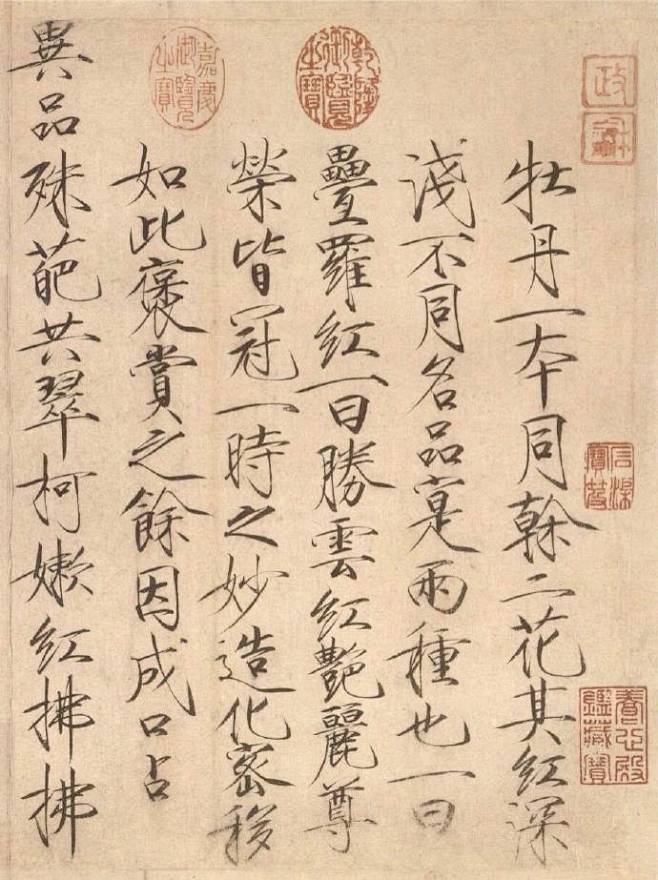 牡丹一本同幹二花其紅深
淺不同名品寔兩種也一曰
疊羅紅一曰勝雲紅艷麗尊
榮皆冠一時之妙造化密移
如此褒賞之餘因成口占
異品殊葩共翠柯嫩紅拂拂
政
龢
石渠寶笈
養心殿鑑藏寶
乾隆御覽之寶
嘉慶御覽之寶